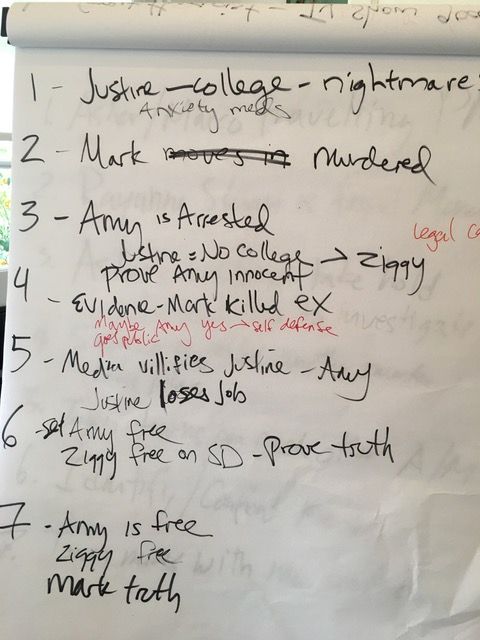 1 - Justine - college - nightmares
Anxiety meds
2 - Mark moves in murdered
3 - Amy is Arrested
Legal
Justine = No college → Ziggy
Prove Amy innocent
4
- Evidence - Mark killed ex
Maybe Amy yes → self defense
goes public
5 - Media villifies Justine - Amy
Justine loses Job
6 - set Amy free
Ziggy free on SD - Prove truth
7 - Amy is free
Ziggy free
Mark truth